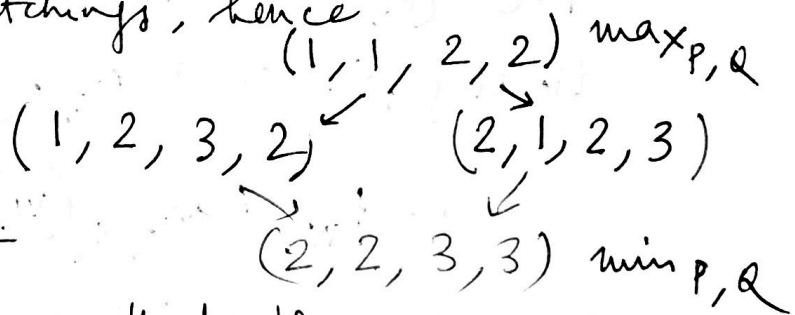 hence
(1, 1, 2, 2) max P, Q
(1, 2, 3, 2) (2, 1, 2, 3)
(2, 2, 3, 3) min P, Q